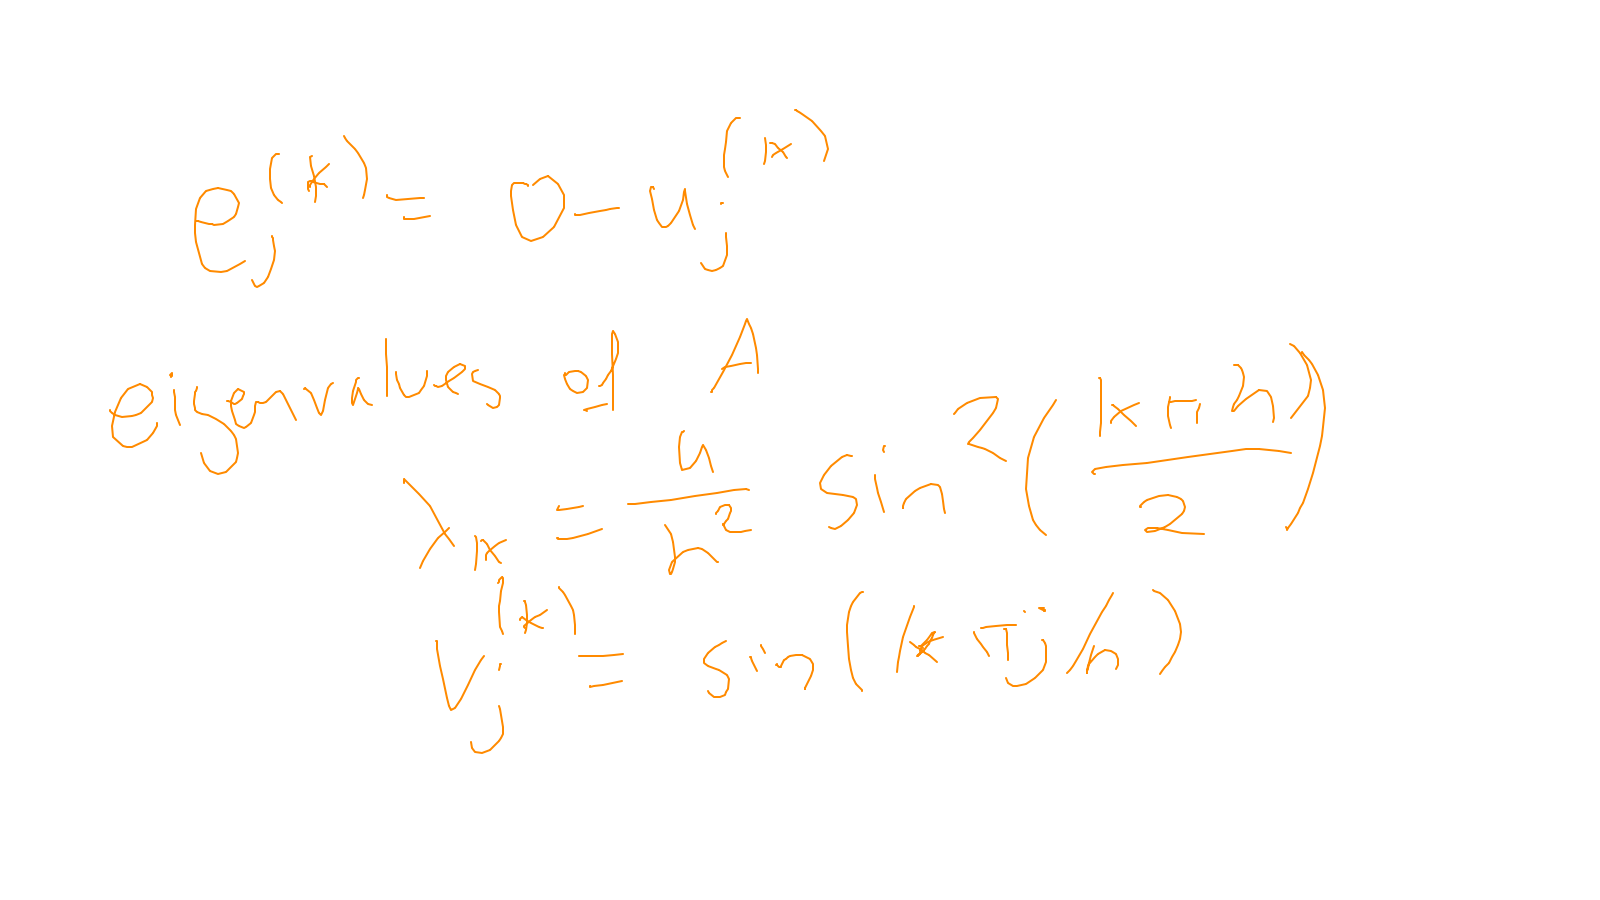 e_j^{(k)} = 0 - u_j^{(k)}
eigenvalues of A
λ_k = \frac{4}{h^2} sin^2(\frac{kπh}{2})
v_j^{(k)} = sin(kπj/n)